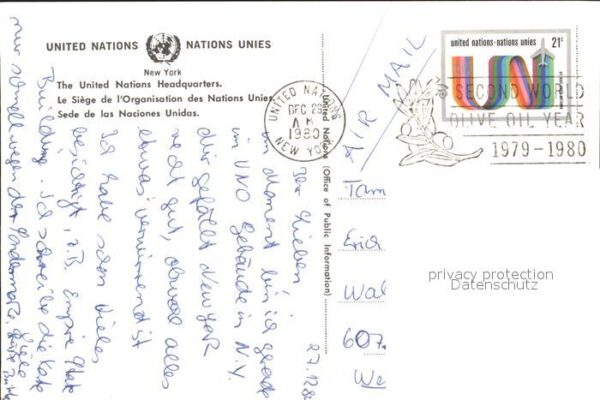 UNITED NATIONS NATIONS UNIES
New York
The United Nations Headquarters.
Le Siège de l'Organisation des Nations Unies
Sede de las Naciones Unidas.
United Nations (Office of Public Information)
AIR MAIL
united nations·nations unies 21¢
UN
UNITED NATIONS
DEC 29
AM
1980
NEW YORK
SECOND WORLD
OLIVE OIL YEAR
1979-1980
27.12.80
Ihr Lieben!
im Moment bin ich gerade
im UNO Gebäude in N.Y.
Mir gefällt New York
recht gut, obwohl alles
etwas verwirrend ist
Ich habe schon vieles
besichtigt, z.B. Empire State
Building. Ich schreibe die Karte
nur schnell wegen der Sondermarke. Viele
Tam
Erich
Wal
607
We
privacy protection
Datenschutz